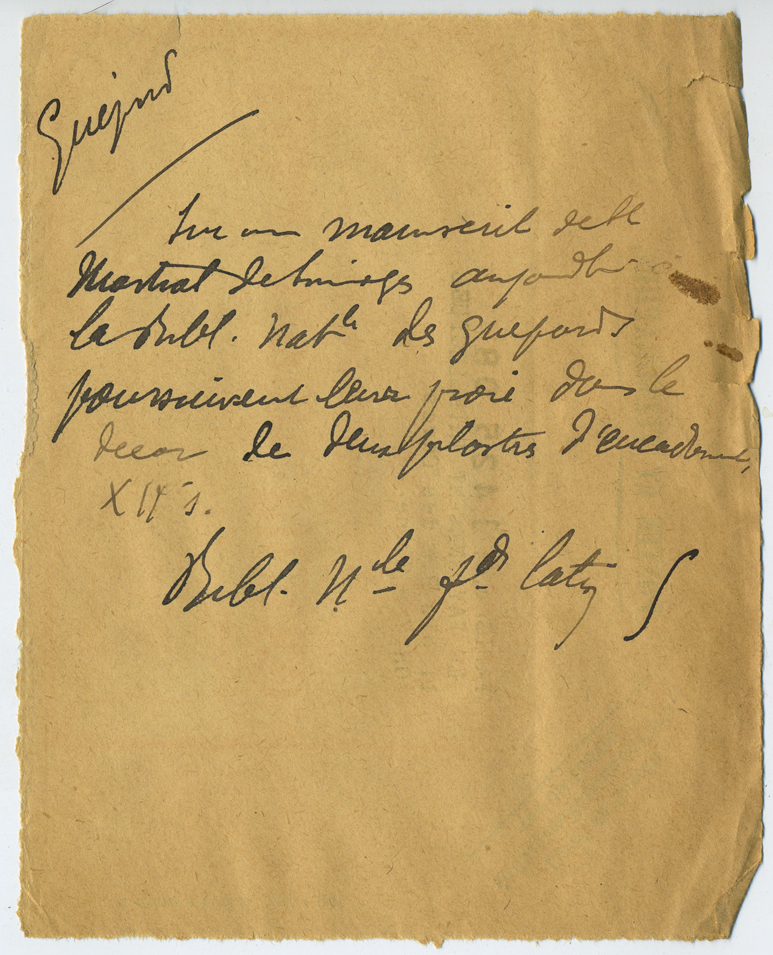 Guépard
Sur un manuscrit de St
Martial de Limoges aujourdhui à
la Bibl. Natle des guépards
poursuivent leur proie dans le
decor de deux pilastres d'encadrement,
s.
Bibl. Nle fds latin 5